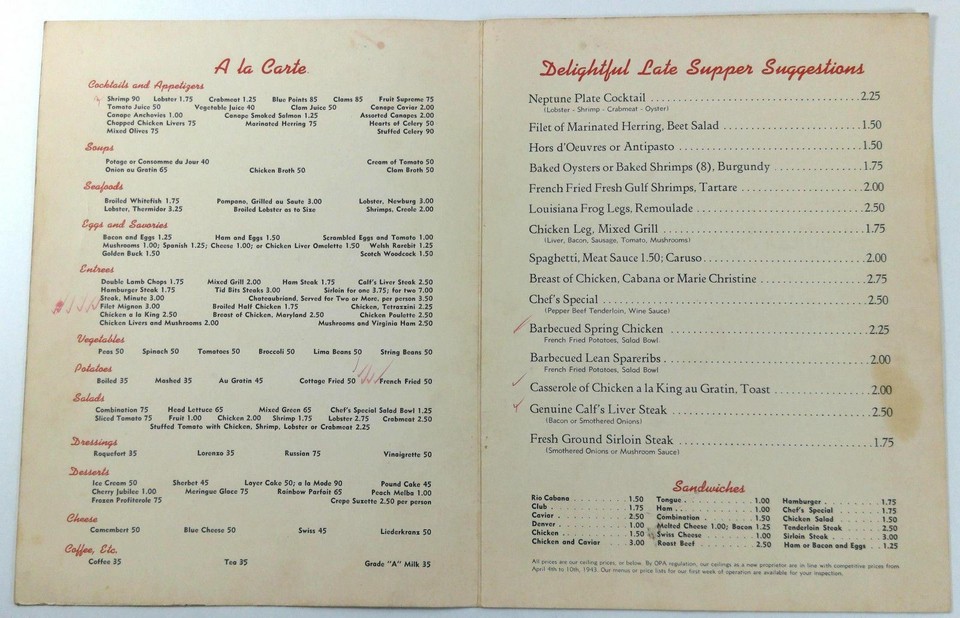 A la Carte
Cocktails and Appetizers
Shrimp 90 Lobster 1.75 Crabmeat 1.25 Blue Points 85 Clams 85 Fruit Supreme 75
Tomato Juice 50 Vegetable Juice 40 Clam Juice 50 Canape Caviar 2.00
Canape Anchovies 1.00 Canape Smoked Salmon 1.25 Assorted Canapes 2.00
Chopped Chicken Livers 75 Marinated Herring 75 Hearts of Celery 50
Mixed Olives 75 Stuffed Celery 90
Soups
Potage or Consomme du Jour 40 Cream of Tomato 50
Onion au Gratin 65 Chicken Broth 50 Clam Broth 50
Seafoods
Broiled Whitefish 1.75 Pompano, Grilled au Saute 3.00 Lobster, Newburg 3.00
Lobster, Thermidor 3.25 Broiled Lobster as to Size Shrimps, Creole 2.00
Eggs and Savories
Bacon and Eggs 1.25 Ham and Eggs 1.50 Scrambled Eggs and Tomato 1.00
Mushrooms 1.00; Spanish 1.25; Cheese 1.00; or Chicken Liver Omelette 1.50 Welsh Rarebit 1.25
Golden Buck 1.50 Scotch Woodcock 1.50
Entrees
Double Lamb Chops 1.75 Mixed Grill 2.00 Ham Steak 1.75 Calf's Liver Steak 2.50
Hamburger Steak 1.75 Tid Bits Steaks 3.00 Sirloin for one 3.75; for two 7.00
Steak, Minute 3.00 Chateaubriand, Served for Two or More, per person 3.50
Filet Mignon 3.00 Broiled Half Chicken 1.75 Chicken, Tetrazzini 2.25
Chicken a la King 2.50 Breast of Chicken, Maryland 2.50 Chicken Poulette 2.50
Chicken Livers and Mushrooms 2.00 Mushrooms and Virginia Ham 2.50
Vegetables
Peas 50 Spinach 50 Tomatoes 50 Broccoli 50 Lima Beans 50 String Beans 50
Potatoes
Boiled 35 Mashed 35 Au Gratin 45 Cottage Fried 50 French Fried 50
Salads
Combination 75 Head Lettuce 65 Mixed Green 65 Chef's Special Salad Bowl 1.25
Sliced Tomato 75 Fruit 1.00 Chicken 2.00 Shrimp 1.75 Lobster 2.75 Crabmeat 2.50
Stuffed Tomato with Chicken, Shrimp, Lobster or Crabmeat 2.25
Dressings
Roquefort 35 Lorenzo 35 Russian 75 Vinaigrette 50
Desserts
Ice Cream 50 Sherbet 45 Layer Cake 50; a la Mode 90 Pound Cake 45
Cherry Jubilee 1.00 Meringue Glace 75 Rainbow Parfait 65 Peach Melba 1.00
Frozen Profiterole 75 Crepe Suzette 2.50 per person
Cheese
Camembert 50 Blue Cheese 50 Swiss 45 Liederkrans 50
Coffee, Etc.
Coffee 35 Tea 35 Grade "A" Milk 35
Delightful Late Supper Suggestions
Neptune Plate Cocktail 2.25
(Lobster - Shrimp - Crabmeat - Oyster)
Filet of Marinated Herring, Beet Salad 1.50
Hors d'Oeuvres or Antipasto 1.50
Baked Oysters or Baked Shrimps (8), Burgundy 1.75
French Fried Fresh Gulf Shrimps, Tartare 2.00
Louisiana Frog Legs, Remoulade 2.50
Chicken Leg, Mixed Grill 1.75
(Liver, Bacon, Sausage, Tomato, Mushrooms)
Spaghetti, Meat Sauce 1.50; Caruso 2.00
Breast of Chicken, Cabana or Marie Christine 2.75
Chef's Special 2.50
(Pepper Beef Tenderloin, Wine Sauce)
Barbecued Spring Chicken 2.25
French Fried Potatoes, Salad Bowl
Barbecued Lean Spareribs 2.00
French Fried Potatoes, Salad Bowl
Casserole of Chicken a la King au Gratin, Toast 2.00
Genuine Calf's Liver Steak 2.50
(Bacon or Smothered Onions)
Fresh Ground Sirloin Steak 1.75
(Smothered Onions or Mushroom Sauce)
Sandwiches
Rio Cabana 1.50 Tongue 1.00 Hamburger 1.75
Club 1.75 Ham 1.00 Chef's Special 1.75
Caviar 2.50 Combination 1.50 Chicken Salad 1.50
Denver 1.00 Melted Cheese 1.00; Bacon 1.25 Tenderloin Steak 2.50
Chicken 1.50 Swiss Cheese 1.00 Sirloin Steak 3.00
Chicken and Caviar 3.00 Roast Beef 2.50 Ham or Bacon and Eggs 1.25
All prices are our ceiling prices, or below. By OPA regulation, our ceilings as a new proprietor are in line with competitive prices from
April 4th to 10th, 1943. Our menus or price lists for our first week of operation are available for your inspection.